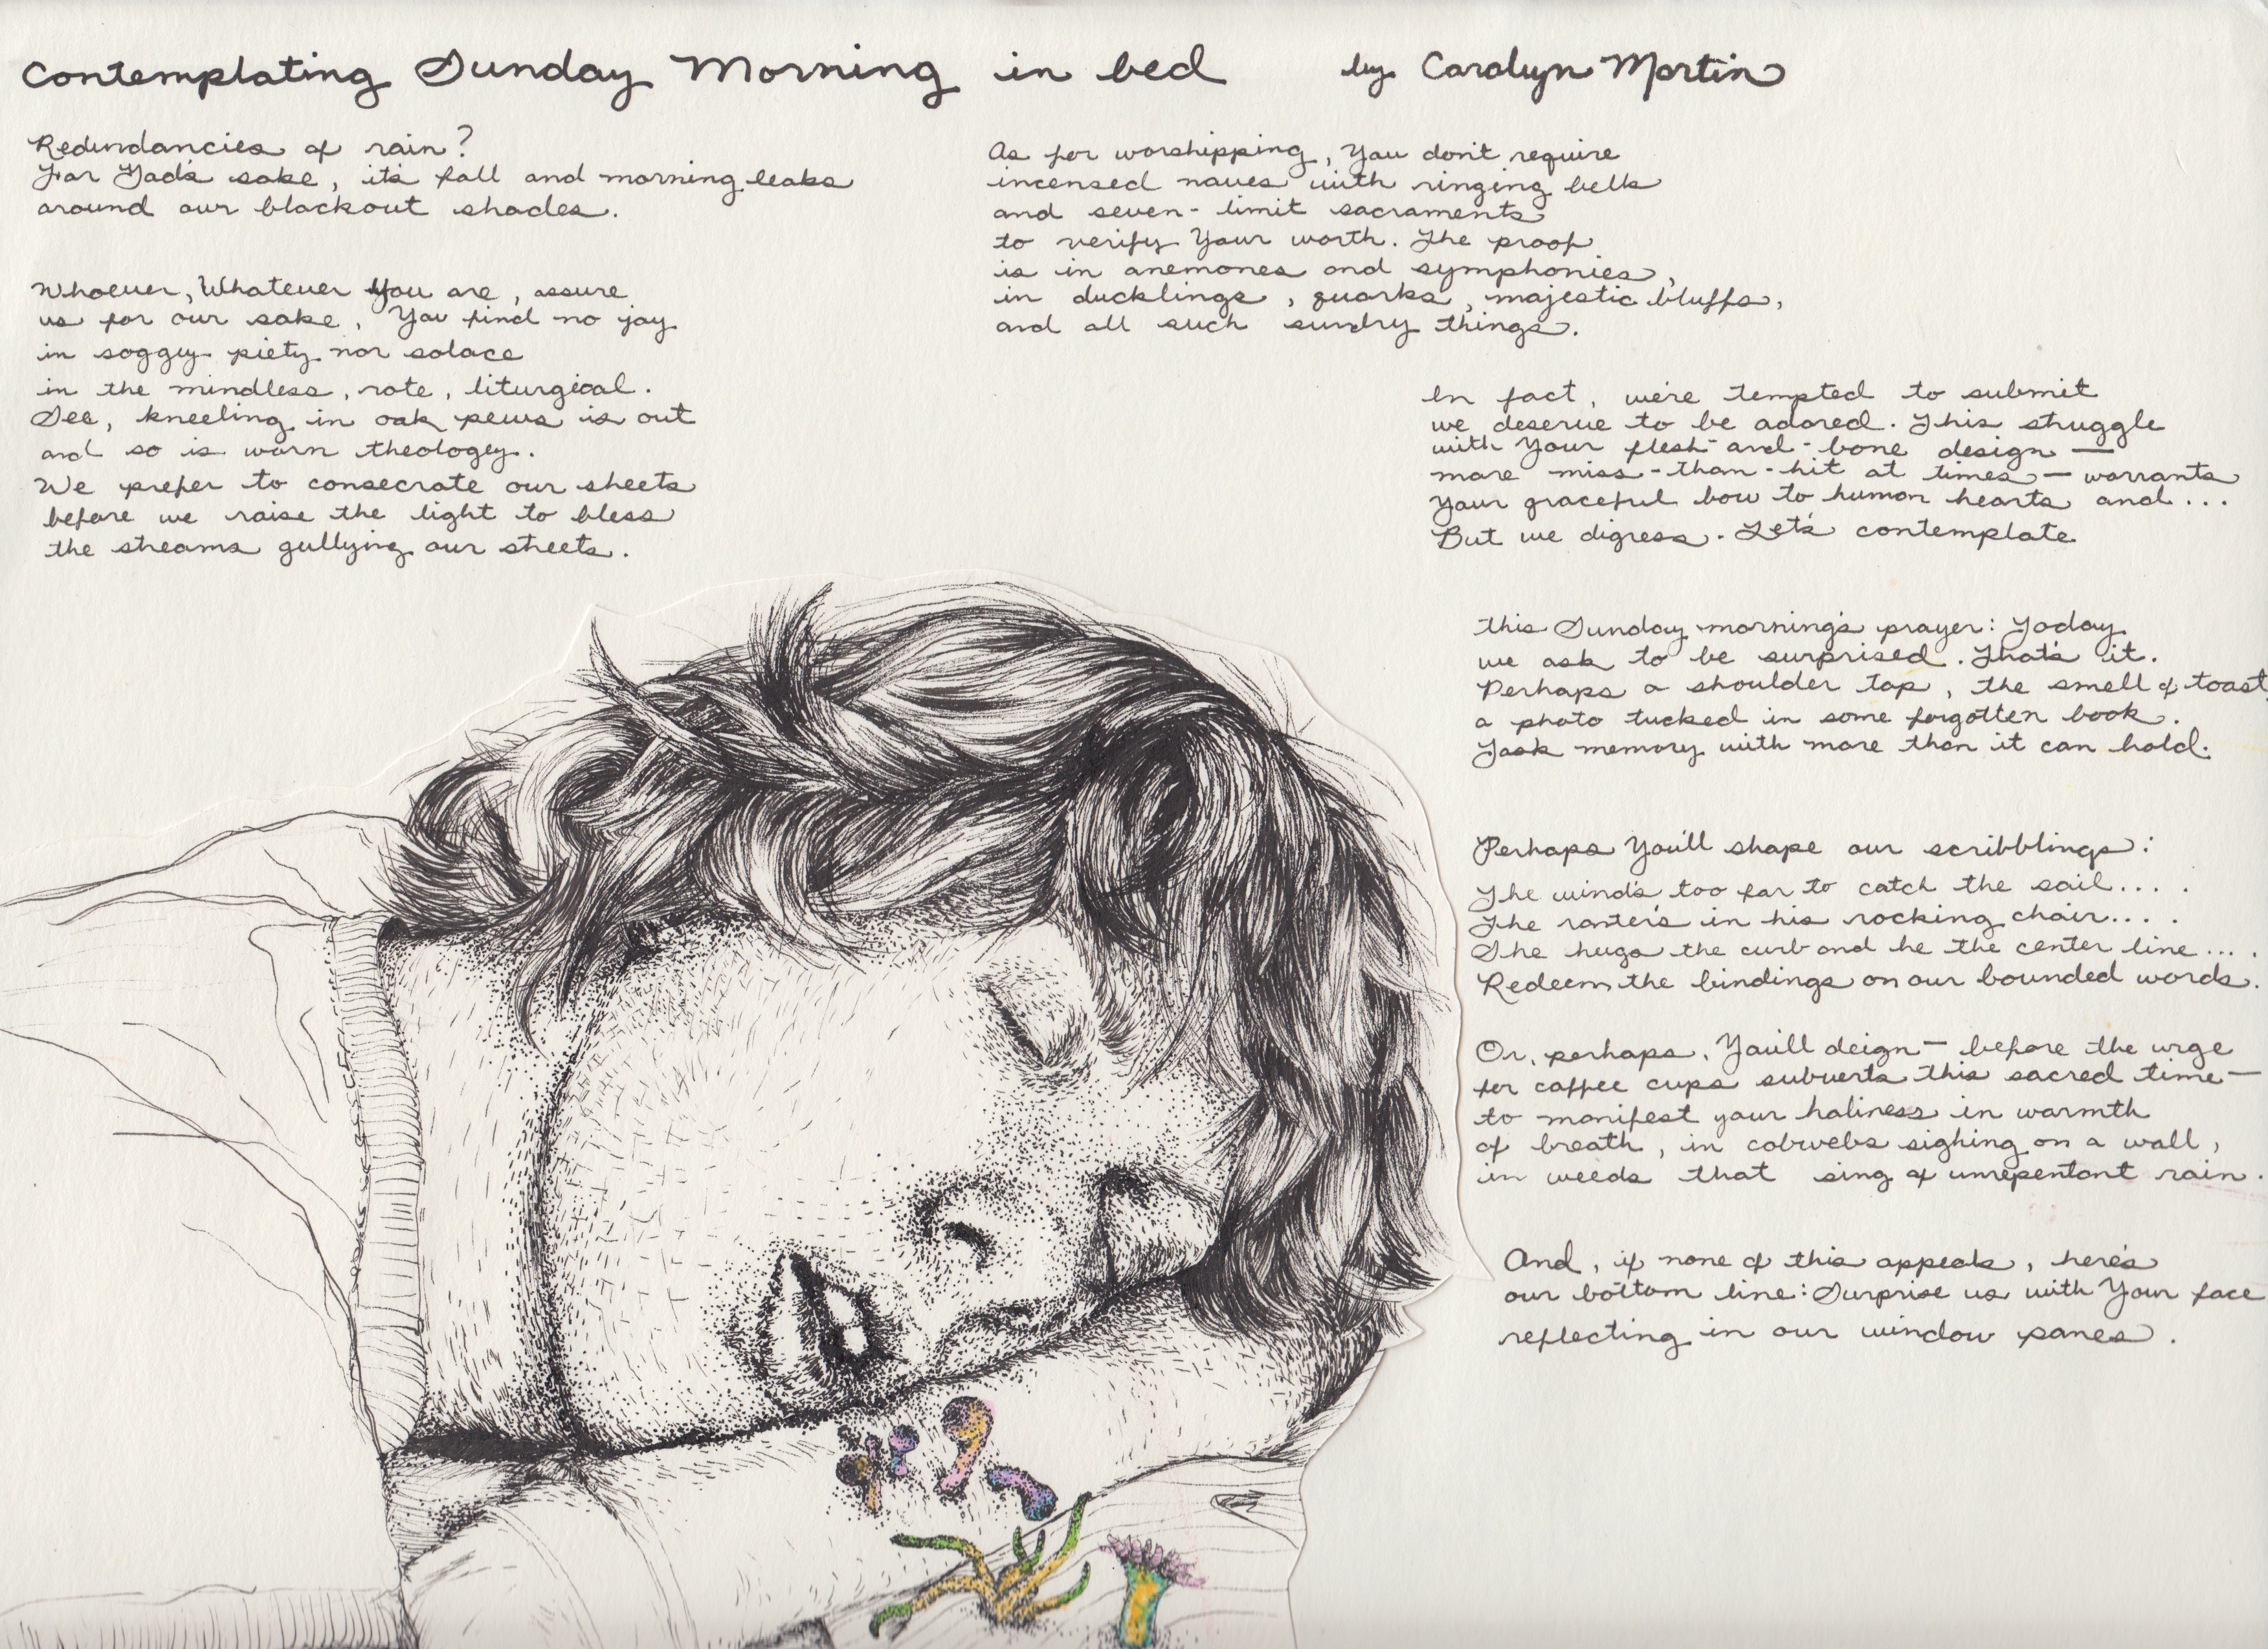 Contemplating Sunday Morning in bed by Carolyn Martin
Redundancies of rain?
For God's sake, it's fall and morning leaks
around our blackout shades.
Whoever, Whatever You are, assure
us for our sake, You find no joy
in soggy piety nor solace
in the mindless, rote, liturgical.
See, kneeling in oak pews is out
and so is worn theology.
We prefer to consecrate our sheets
before we raise the light to bless
the streams gullying our streets.
As for worshipping, You don't require
incensed naves with ringing bells
and seven-limit sacraments
to verify Your worth. The proof
is in anemones and symphonies,
in ducklings, quarks, majestic bluffs,
and all such sundry things.
In fact, we're tempted to submit
we deserve to be adored. This struggle
with Your flesh-and-bone design —
more miss-than-hit at times — warrants
Your graceful bow to human hearts and ...
But we digress. Let's contemplate
this Sunday morning's prayer: Today
we ask to be surprised. That's it.
Perhaps a shoulder tap, the smell of toast,
a photo tucked in some forgotten book.
Task memory with more than it can hold.
Perhaps You'll shape our scribblings:
The wind's too far to catch the sail....
The ranter's in his rocking chair....
She hugs the curb and he the center line....
Redeem the bindings on our bounded words.
Or, perhaps, You'll deign — before the urge
for coffee cups subverts this sacred time —
to manifest your holiness in warmth
of breath, in cobwebs sighing on a wall,
in weeds that sing of unrepentant rain.
And, if none of this appeals, here's
our bottom line: Surprise us with Your face
reflecting in our window panes.